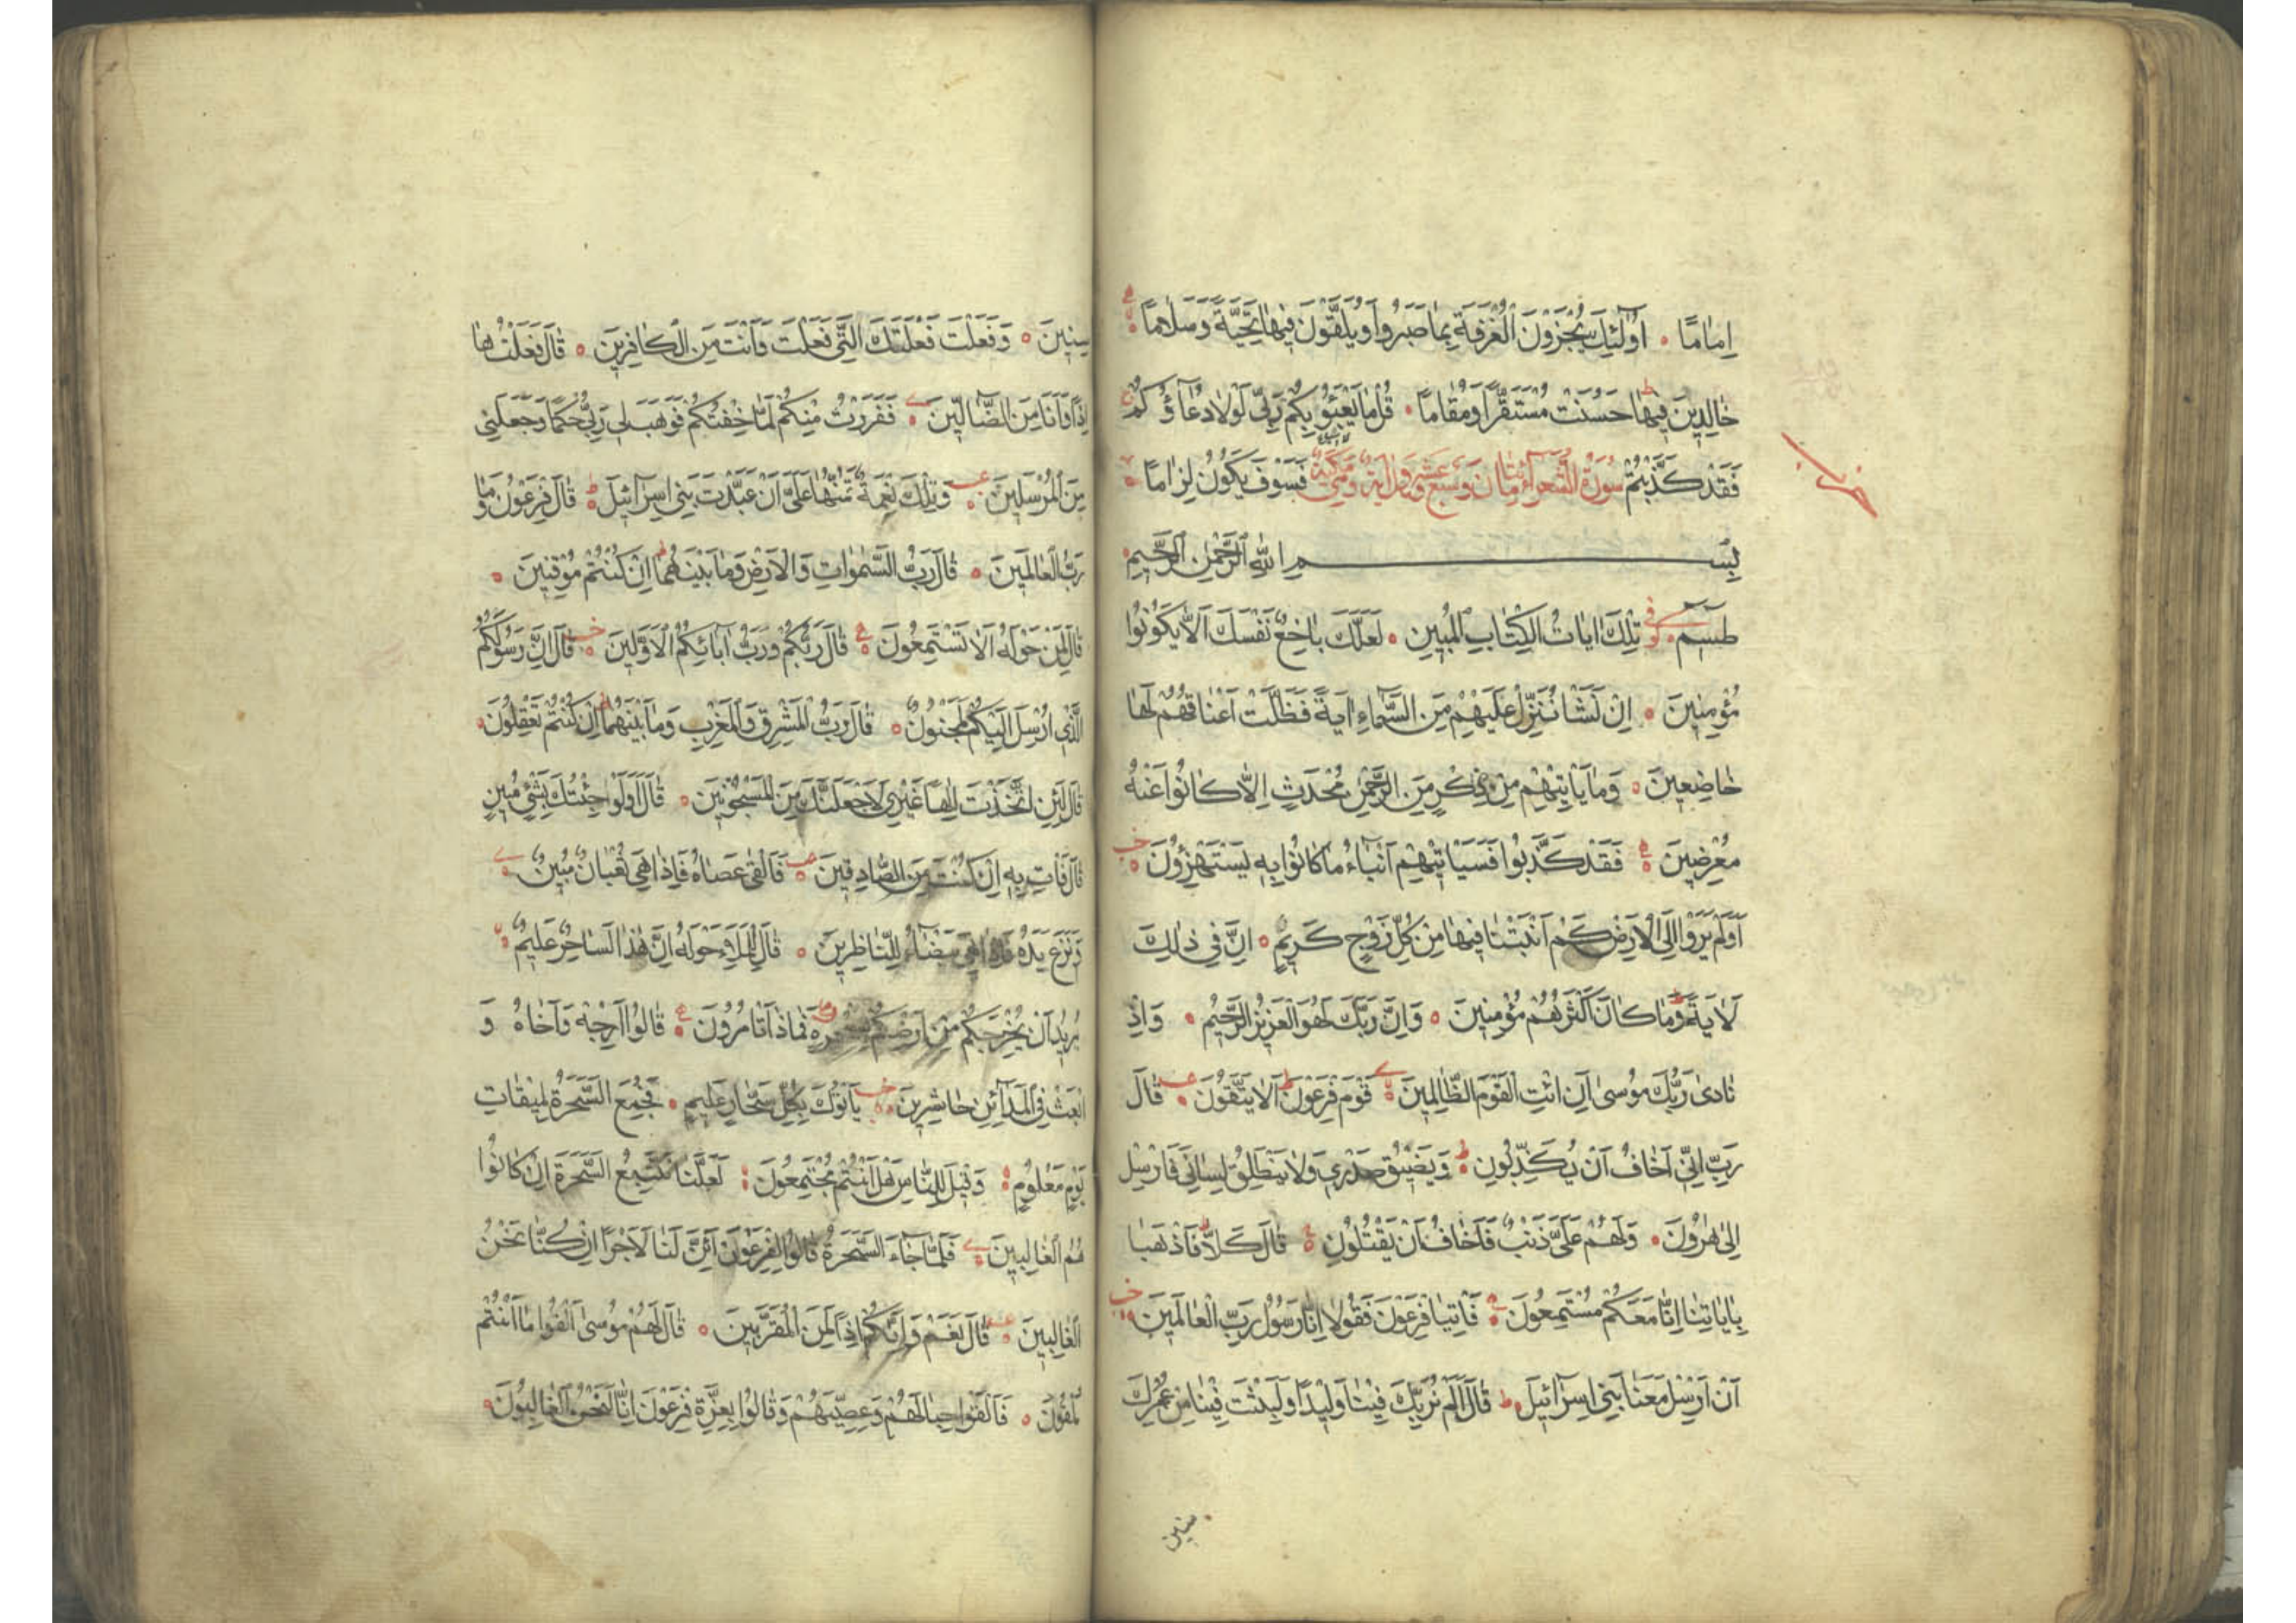 اِمَامًا ۰ اُولٰٓئِكَ يُجْزَوْنَ الْغُرْفَةَ بِمَا صَبَرُوا وَيُلَقَّوْنَ فِيهَا تَحِيَّةً وَسَلَامًا
خَالِدِينَ فِيهَا حَسُنَتْ مُسْتَقَرًّا وَمُقَامًا ۰ قُلْ مَا يَعْبَؤُا بِكُمْ رَبِّي لَوْلَا دُعَاؤُكُمْ
فَقَدْ كَذَّبْتُمْ سُورَةُ الشُّعَرَاءِ مِائَتَانِ وَسَبْعَ وَعِشْرُونَ آيَةً وَمَكِّيَّةٌ فَسَوْفَ يَكُونُ لِزَامًا
بِسْمِ اللّٰهِ الرَّحْمٰنِ الرَّحِيمِ
طٰسٓمٓ تِلْكَ اٰيَاتُ الْكِتَابِ الْمُبِينِ ۰ لَعَلَّكَ بَاخِعٌ نَفْسَكَ اَلَّا يَكُونُوا
مُؤْمِنِينَ ۰ اِنْ نَشَأْ نُنَزِّلْ عَلَيْهِمْ مِنَ السَّمَاءِ اٰيَةً فَظَلَّتْ اَعْنَاقُهُمْ لَهَا
خَاضِعِينَ ۰ وَمَا يَأْتِيهِمْ مِنْ ذِكْرٍ مِنَ الرَّحْمٰنِ مُحْدَثٍ اِلَّا كَانُوا عَنْهُ
مُعْرِضِينَ ۰ فَقَدْ كَذَّبُوا فَسَيَأْتِيهِمْ اَنْبَاءُ مَا كَانُوا بِهِ يَسْتَهْزِؤُنَ
اَوَلَمْ يَرَوْا اِلَى الْاَرْضِ كَمْ اَنْبَتْنَا فِيهَا مِنْ كُلِّ زَوْجٍ كَرِيمٍ ۰ اِنَّ فِي ذٰلِكَ
لَاٰيَةً وَمَا كَانَ اَكْثَرُهُمْ مُؤْمِنِينَ ۰ وَاِنَّ رَبَّكَ لَهُوَ الْعَزِيزُ الرَّحِيمُ ۰ وَاِذْ
نَادٰى رَبُّكَ مُوسٰى اَنِ ائْتِ الْقَوْمَ الظَّالِمِينَ ۰ قَوْمَ فِرْعَوْنَ اَلَا يَتَّقُونَ ۰ قَالَ
رَبِّ اِنِّي اَخَافُ اَنْ يُكَذِّبُونِ ۰ وَيَضِيقُ صَدْرِي وَلَا يَنْطَلِقُ لِسَانِي فَاَرْسِلْ
اِلٰى هٰرُونَ ۰ وَلَهُمْ عَلَيَّ ذَنْبٌ فَاَخَافُ اَنْ يَقْتُلُونِ ۰ قَالَ كَلَّا فَاذْهَبَا
بِاٰيَاتِنَا اِنَّا مَعَكُمْ مُسْتَمِعُونَ ۰ فَأْتِيَا فِرْعَوْنَ فَقُولَا اِنَّا رَسُولُ رَبِّ الْعَالَمِينَ
اَنْ اَرْسِلْ مَعَنَا بَنِي اِسْرَائِيلَ ۰ قَالَ اَلَمْ نُرَبِّكَ فِينَا وَلِيدًا وَلَبِثْتَ فِينَا مِنْ عُمُرِكَ
سنين
سِنِينَ ۰ وَفَعَلْتَ فَعْلَتَكَ الَّتِي فَعَلْتَ وَاَنْتَ مِنَ الْكَافِرِينَ ۰ قَالَ فَعَلْتُهَا
اِذًا وَاَنَا مِنَ الضَّالِّينَ ۰ فَفَرَرْتُ مِنْكُمْ لَمَّا خِفْتُكُمْ فَوَهَبَ لِي رَبِّي حُكْمًا وَجَعَلَنِي
مِنَ الْمُرْسَلِينَ ۰ وَتِلْكَ نِعْمَةٌ تَمُنُّهَا عَلَيَّ اَنْ عَبَّدْتَ بَنِي اِسْرَائِيلَ ۰ قَالَ فِرْعَوْنُ وَمَا
رَبُّ الْعَالَمِينَ ۰ قَالَ رَبُّ السَّمٰوَاتِ وَالْاَرْضِ وَمَا بَيْنَهُمَا اِنْ كُنْتُمْ مُوقِنِينَ ۰
قَالَ لِمَنْ حَوْلَهُ اَلَا تَسْتَمِعُونَ ۰ قَالَ رَبُّكُمْ وَرَبُّ اٰبَائِكُمُ الْاَوَّلِينَ ۰ قَالَ اِنَّ رَسُولَكُمُ
الَّذِي اُرْسِلَ اِلَيْكُمْ لَمَجْنُونٌ ۰ قَالَ رَبُّ الْمَشْرِقِ وَالْمَغْرِبِ وَمَا بَيْنَهُمَا اِنْ كُنْتُمْ تَعْقِلُونَ ۰
قَالَ لَئِنِ اتَّخَذْتَ اِلٰهًا غَيْرِي لَاَجْعَلَنَّكَ مِنَ الْمَسْجُونِينَ ۰ قَالَ اَوَلَوْ جِئْتُكَ بِشَيْءٍ مُبِينٍ
قَالَ فَأْتِ بِهِ اِنْ كُنْتَ مِنَ الصَّادِقِينَ ۰ فَاَلْقٰى عَصَاهُ فَاِذَا هِيَ ثُعْبَانٌ مُبِينٌ
وَنَزَعَ يَدَهُ فَاِذَا هِيَ بَيْضَاءُ لِلنَّاظِرِينَ ۰ قَالَ لِلْمَلَاِ حَوْلَهُ اِنَّ هٰذَا لَسَاحِرٌ عَلِيمٌ
يُرِيدُ اَنْ يُخْرِجَكُمْ مِنْ اَرْضِكُمْ بِسِحْرِهِ فَمَاذَا تَأْمُرُونَ ۰ قَالُوا اَرْجِهْ وَاَخَاهُ وَ
ابْعَثْ فِي الْمَدَائِنِ حَاشِرِينَ ۰ يَأْتُوكَ بِكُلِّ سَحَّارٍ عَلِيمٍ ۰ فَجُمِعَ السَّحَرَةُ لِمِيقَاتِ
يَوْمٍ مَعْلُومٍ ۰ وَقِيلَ لِلنَّاسِ هَلْ اَنْتُمْ مُجْتَمِعُونَ ۰ لَعَلَّنَا نَتَّبِعُ السَّحَرَةَ اِنْ كَانُوا
هُمُ الْغَالِبِينَ ۰ فَلَمَّا جَاءَ السَّحَرَةُ قَالُوا لِفِرْعَوْنَ اَئِنَّ لَنَا لَاَجْرًا اِنْ كُنَّا نَحْنُ
الْغَالِبِينَ ۰ قَالَ نَعَمْ وَاِنَّكُمْ اِذًا لَمِنَ الْمُقَرَّبِينَ ۰ قَالَ لَهُمْ مُوسٰى اَلْقُوا مَا اَنْتُمْ
مُلْقُونَ ۰ فَاَلْقَوْا حِبَالَهُمْ وَعِصِيَّهُمْ وَقَالُوا بِعِزَّةِ فِرْعَوْنَ اِنَّا لَنَحْنُ الْغَالِبُونَ ۰